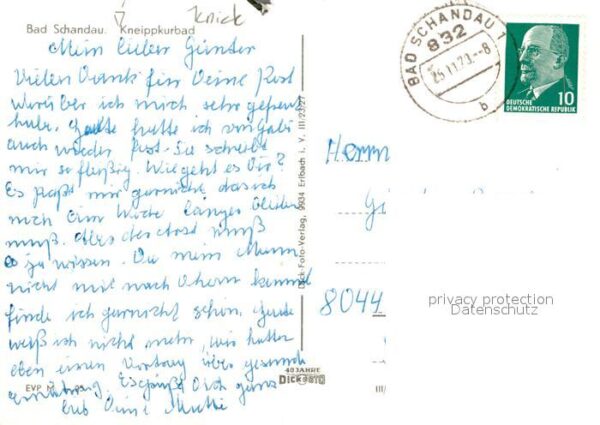 Knick
Bad Schandau. Kneippkurbad
Mein lieber Günter
Vielen Dank für Deine Post
worüber ich mich sehr gefreut
habe. Heute hatte ich von Gabi
auch wieder Post. Sie schreibt
mir so fleißig. Wie geht es Dir?
Es paßt mir garnicht das ich
noch eine Woche länger bleiben
muß. Aber der Arzt muß
es ja wissen. Du mein Mann
nicht mit nach kommt
finde ich garnicht schön. Heute
weiß ich nicht mehr, wir hatten
eben einen Vortrag über gesunde
Ernährung. Es grüßt Dich ganz
lieb Deine Mutti
EVP M
III/23/27
Dick-Foto-Verlag, 9934 Erlbach i. V.
40 JAHRE
DICK FOTO
BAD SCHANDAU 1
832
25.11.73.-8
b
DEUTSCHE
DEMOKRATISCHE REPUBLIK
10
Herrn
8044
III/
privacy protection
Datenschutz